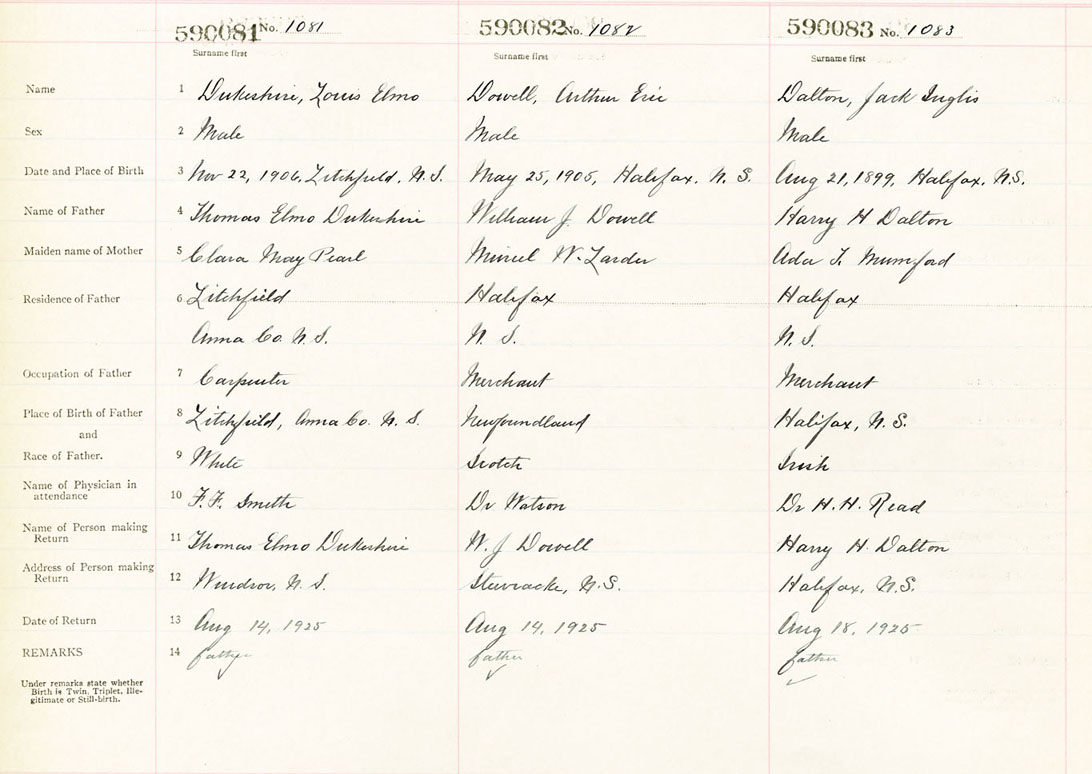 590081 No. 1081 590082 No. 1082 590083 No. 1083
Surname first Surname first Surname first
Name 1 Dukeshire, Louis Elmo Dowell, Arthur Eric Dalton, Jack Inglis
Sex 2 Male Male Male
Date and Place of Birth 3 Nov 22, 1906, Litchfield, N.S. May 25, 1905, Halifax, N.S. Aug 21, 1899, Halifax, N.S.
Name of Father 4 Thomas Elmo Dukeshire William J. Dowell Harry H Dalton
Maiden name of Mother 5 Clara May Pearl Muriel W. Larder Ada T. Mumford
Residence of Father 6 Litchfield Halifax Halifax
Anna Co. N.S. N.S. N.S.
Occupation of Father 7 Carpenter Merchant Merchant
Place of Birth of Father 8 Litchfield, Anna Co. N.S. Newfoundland Halifax, N.S.
and
Race of Father. 9 White Scotch Irish
Name of Physician in
attendance 10 F.F. Smith Dr Watson Dr H.H. Read
Name of Person making
Return 11 Thomas Elmo Dukeshire W. J Dowell Harry H. Dalton
Address of Person making
Return 12 Windsor, N.S. N.S. Halifax, N.S.
Date of Return 13 Aug 14, 1925 Aug 14, 1925 Aug 18, 1925
REMARKS 14 father father father
Under remarks state whether
Birth is Twin, Triplet, Ille-
gitimate or Still-birth.